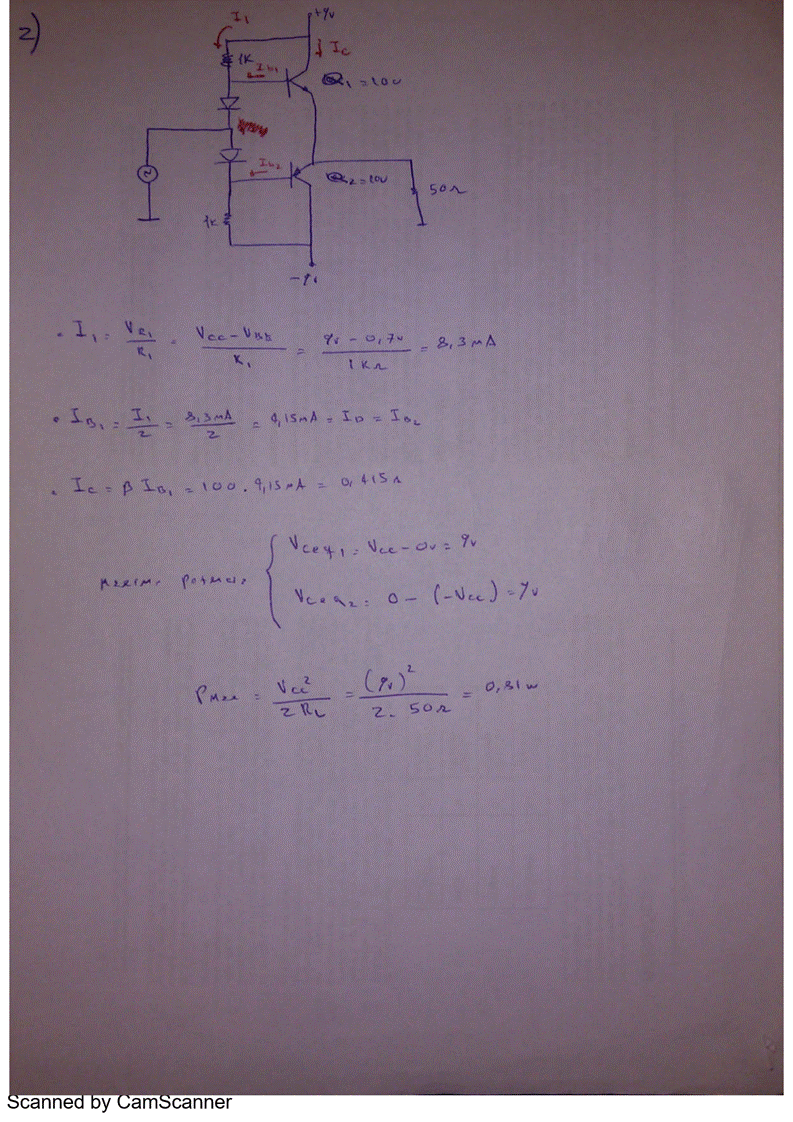 2)
I₁
+9v
↓ I_C
1K
I_B1
Q₁ = 100
I_B2
Q₂ = 100
50Ω
1K
-9v
• I₁ = V_R1 / R₁ = (V_CC - V_BE) / R₁ = (9v - 0,7v) / 1KΩ = 8,3mA
• I_B1 = I₁ / 2 = 8,3mA / 2 = 4,15mA = I_D = I_B2
• I_C = β I_B1 = 100 . 4,15mA = 0,415A
maxima potencia { V_CEQ1 = V_CC - 0v = 9v
V_CEQ2 = 0 - (-V_CC) = 9v
P_Max = V_CC² / 2R_L = (9v)² / 2. 50Ω = 0,81w
Scanned by CamScanner